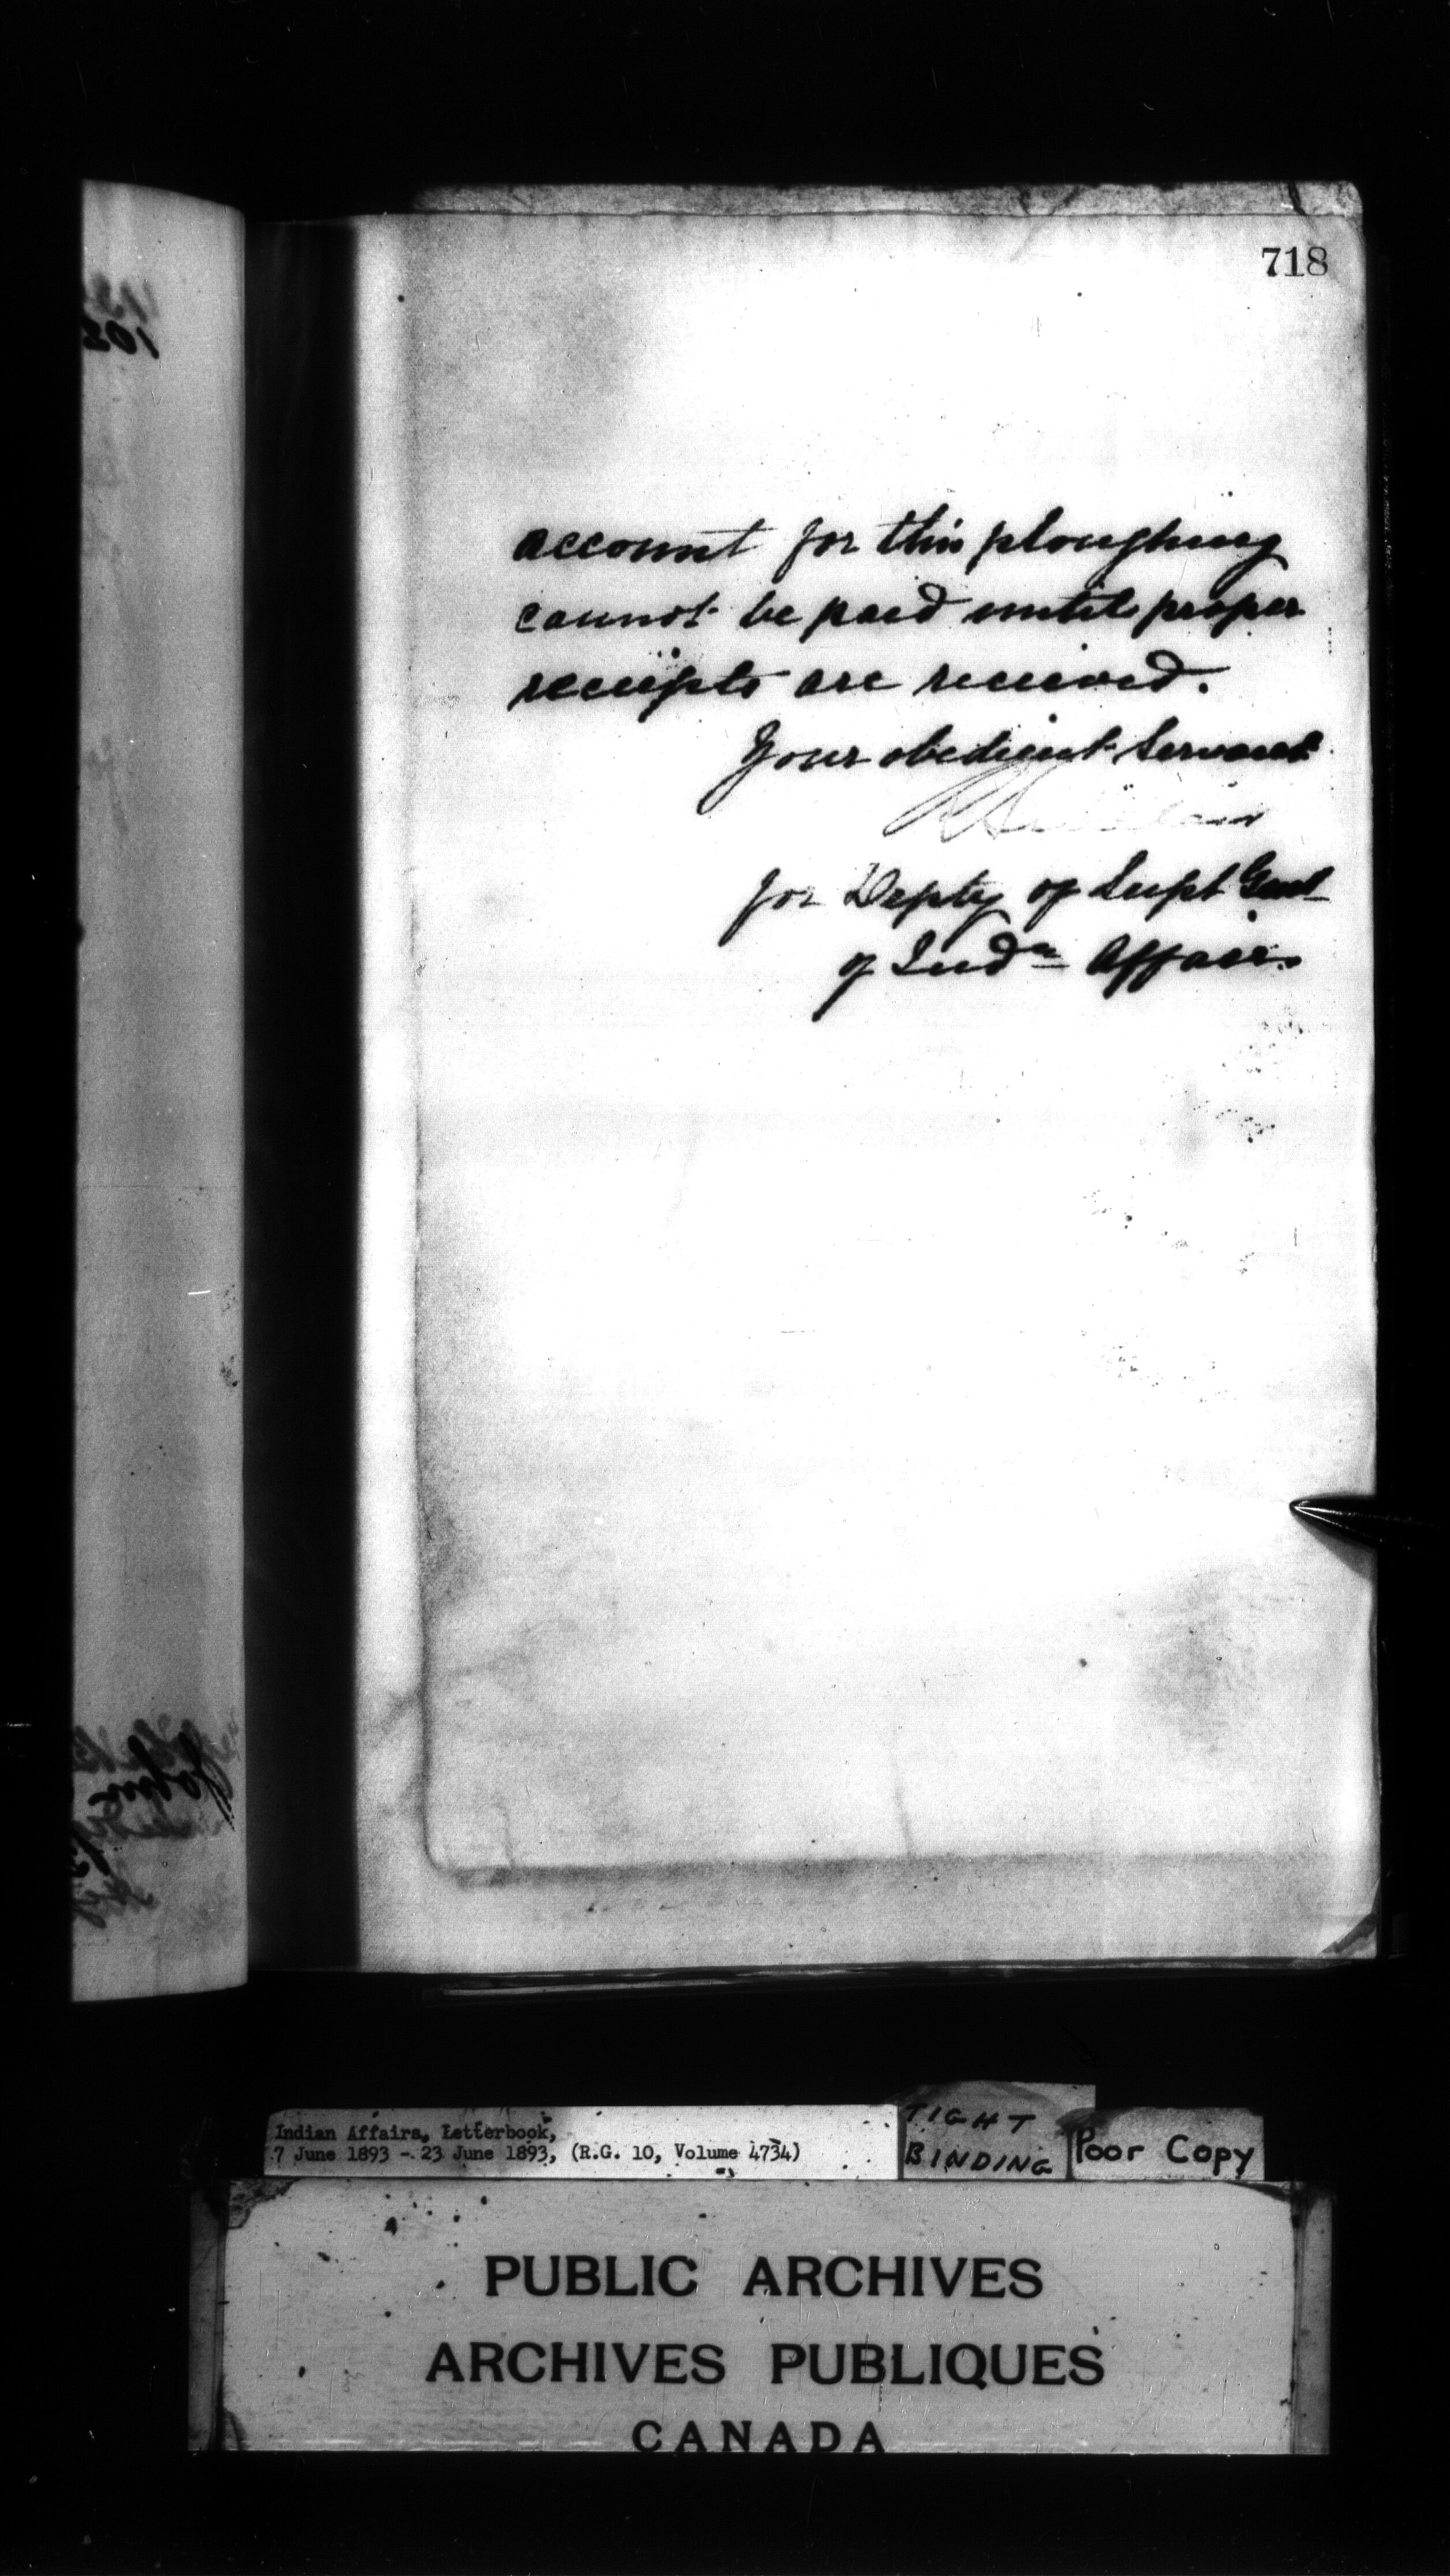 718
account for this ploughing
cannot be paid until proper
receipts are received.
Your obedient Servant
for Depty of Supt Genl
of Indn Affairs
Indian Affairs, Letterbook,
7 June 1893 - 23 June 1893, (R.G. 10, Volume 4734)
TIGHT
BINDING
Poor Copy
PUBLIC ARCHIVES
ARCHIVES PUBLIQUES
CANADA